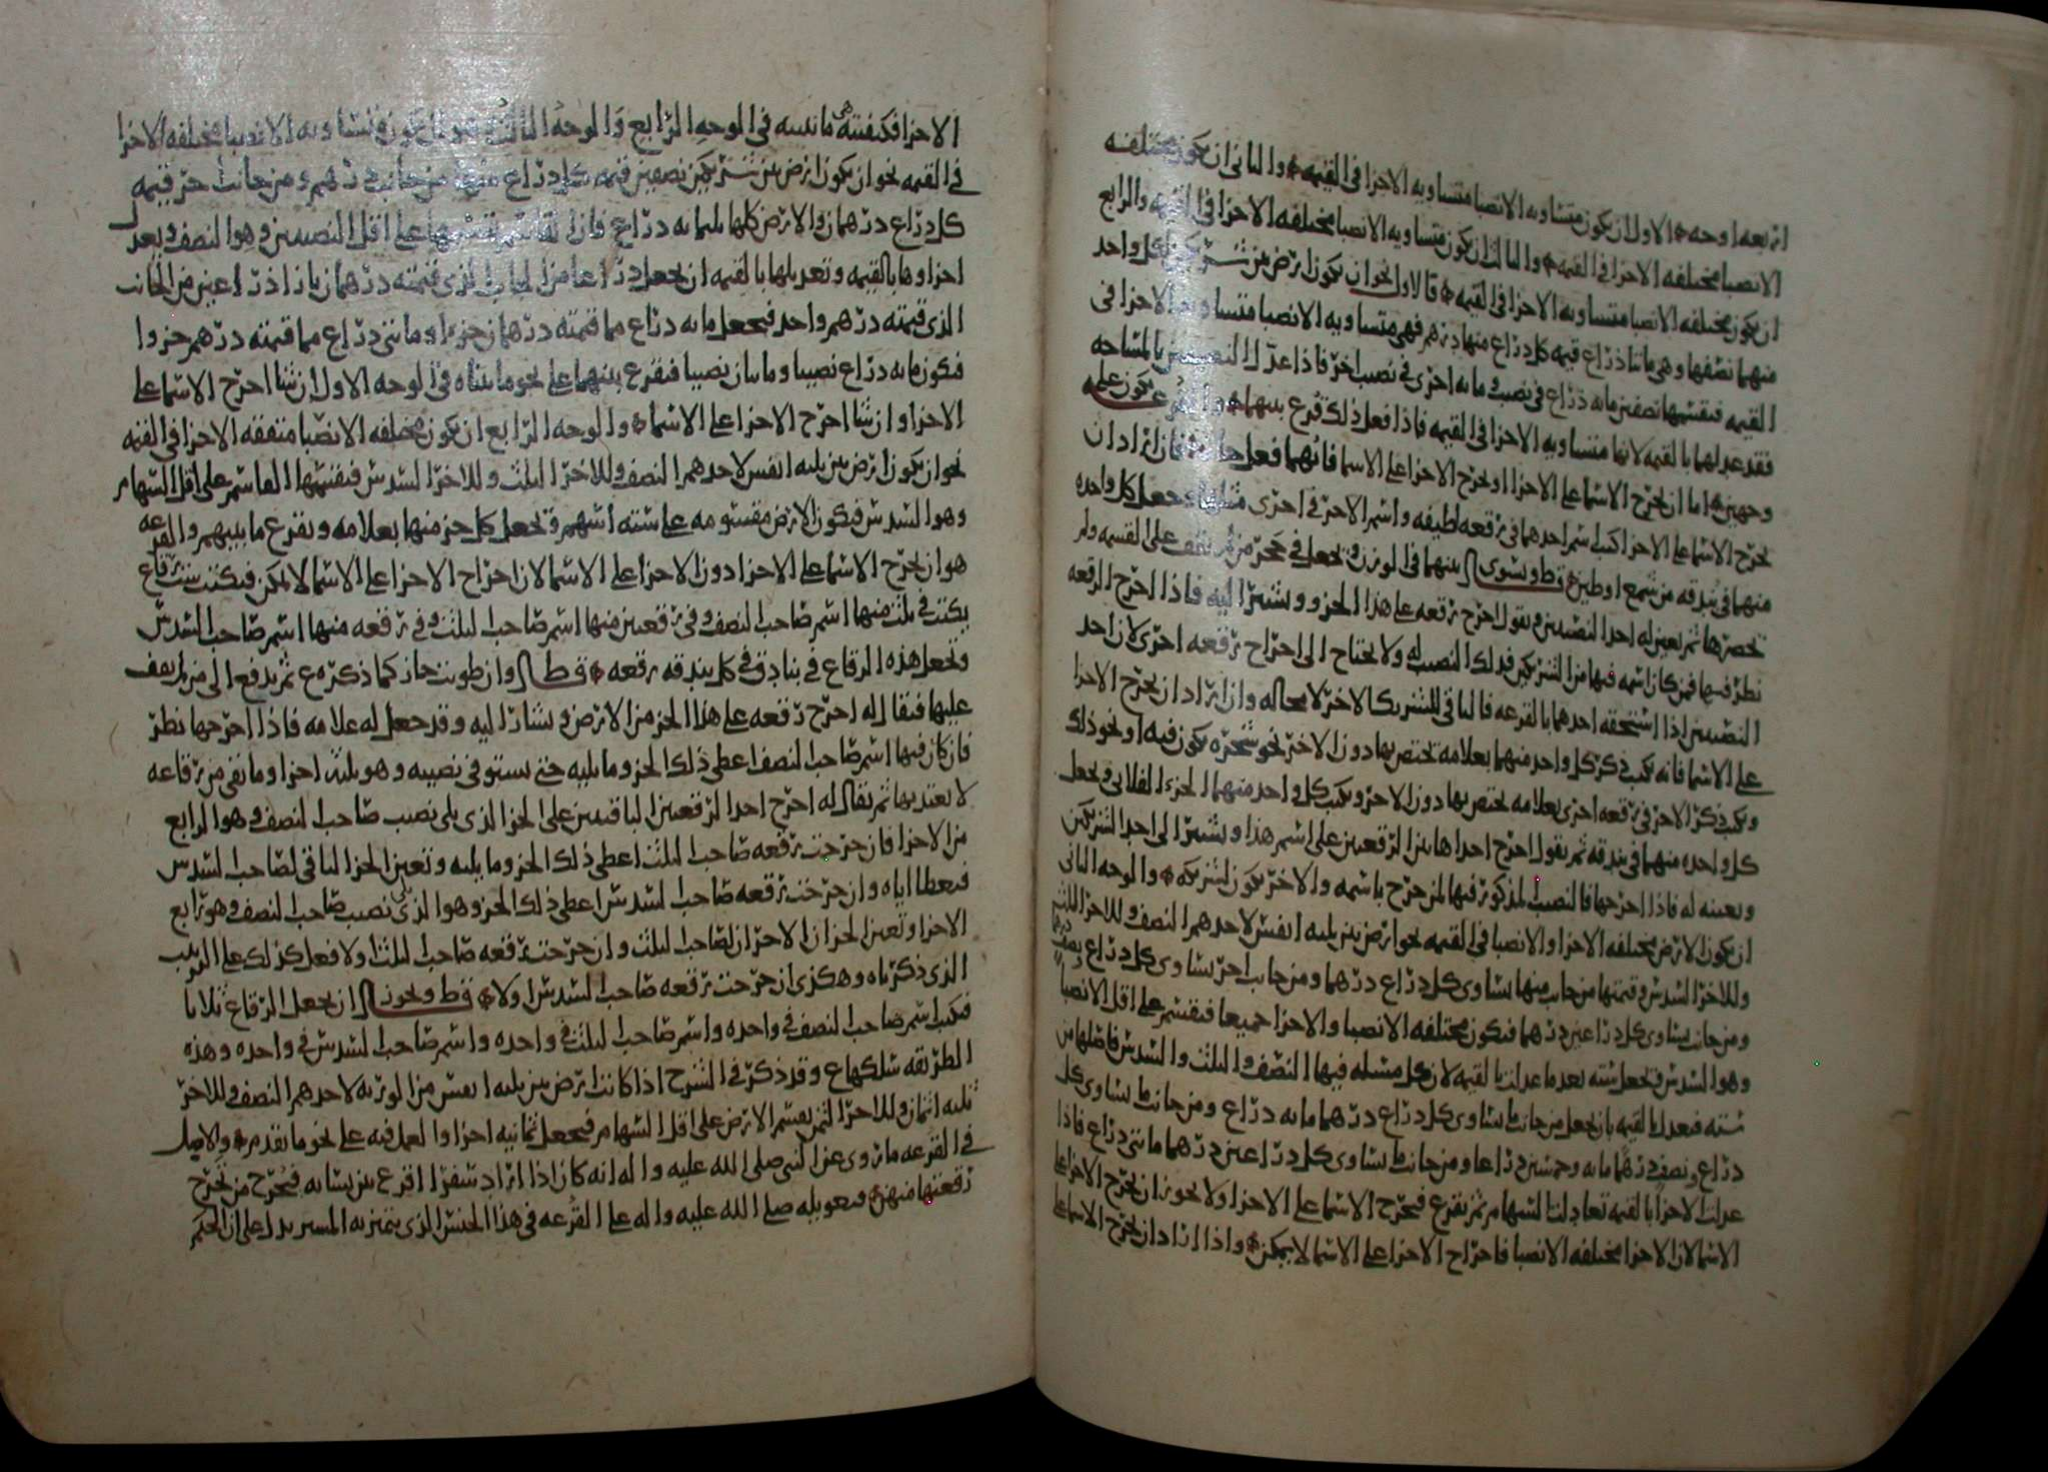 اربعه اوجه الاول ان يكون متساويه الانصبا متساويه الاجزا في القيمه والثاني ان يكون مختلفه
الانصبا مختلفه الاجزا في القيمه والثالث ان يكون متساويه الانصبا مختلفه الاجزا في القيمه والرابع
ان يكون مختلفه الانصبا متساويه الاجزا في القيمه فالاول نحو ان يكون ارض بين شريكين لكل واحد
منهما نصفها وهي مائتا ذراع قيمه كل ذراع منها درهم فهي متساويه الانصبا متساويه الاجزا في
القيمه فيقسمها نصفين مايه ذراع في نصيب ومايه اخرى في نصيب اخر فاذا عدل النصيبين بالمساحه
فقد عدلهما بالقيمه لانها متساويه الاجزا في القيمه فاذا فعل ذلك قرع بينهما والقرع يكون على
وجهين اما ان يخرج الاسما على الاجزا او يخرج الاجزا على الاسما فايهما فعل جاز فان اراد ان
يخرج الاسما على الاجزا كتب اسم احدهما في رقعه لطيفه واسم الاخر في اخرى مثلها ويجعل كل واحده
منهما في بندقه من شمع او طين قط ويسوى بينهما في الوزن ويجعل في حجر من لم يقف على القسمه ولم
يحضرها ثم يعين له احد النصيبين ويقول اخرج رقعه على هذا الجزو ويشير اليه فاذا اخرج الرقعه
نظر فيها فمن كان اسمه فيها من الشريكين فذلك النصيب له ولا يحتاج الى اخراج رقعه اخرى لان احد
النصيبين اذا استحقه احدهما بالقرعه فالباقي للشريك الاخر لا محاله وان اراد ان يخرج الاجزا
على الاسما فانه يكتب ذكر كل واحد منهما بعلامه يختص بها دون الاخر نحو شجره يكون فيه او نحو ذلك
ويكتب ذكر الاخر في رقعه اخرى بعلامه يختص بها دون الاخر ويكتب كل واحد منهما الجزء الفلاني ويجعل
كل واحده منهما في بندقه ثم يقول اخرج احدى هاتين الرقعتين على اسم هذا ويشير الى احد الشريكين
ويعينه له فاذا اخرجها فالنصيب المذكور فيها لمن خرج باسمه والاخر يكون لشريكه والوجه الثاني
ان يكون الارض مختلفه الاجزا والانصبا في القيمه نحو ارض بين ثلثه انفس لاحدهم النصف وللاخر الثلث
وللاخر السدس وقيمتها من جانب منها يساوى كل ذراع درهما ومن جانب اخر يساوى كل ذراع نصف درهم
ومن جانب يساوى كل ذراعين درهما فيكون مختلفه الانصبا والاجزا جميعا فيقسم على اقل الانصبا
وهو السدس فيجعل سته بعد ما عدلت بالقيمه لان كل مسئله فيها النصف والثلث والسدس فاصلها من
سته فيعدل بالقيمه بان يجعل من جانب ما يساوى كل ذراع درهما مايه ذراع ومن جانب ما يساوى كل
ذراع ونصف درهما مايه وخمسين ذراعا ومن جانب ما يساوى كل ذراعين درهما مائتي ذراع فاذا
عدلت الاجزا بالقيمه تعادلت السهام ثم يقرع فيخرج الاسما على الاجزا ولا يجوز ان يخرج الاجزا على
الاسما لان الاجزا مختلفه الانصبا فاخراج الاجزا على الاسما لا يمكن واذا اراد ان يخرج الاسما على
الاجزا فكيفيته هي ما نبينه في الوجه الرابع والوجه الثالث وهو ان يكون متساويه الانصبا مختلفه الاجزا
في القيمه نحو ان يكون ارض بين شريكين نصفين قيمه كل ذراع منها من جانب درهم ومن جانب اخر قيمه
كل ذراع درهمان والارض كلها ثلثمايه ذراع فان القاسم يقسمها على اقل النصيبين وهو النصف ويعدل
اجزاوها بالقيمه وتعديلها بالقيمه ان يجعل ذراعا من الجانب الذي قيمته درهمان بازا ذراعين من الجانب
الذي قيمته درهم واحد فيجعل مايه ذراع مما قيمته درهمان جزءا ومائتي ذراع مما قيمته درهم جزوا
فيكون مايه ذراع نصيبا ومائتان نصيبا فيقرع بينهما على نحو ما بيناه في الوجه الاول ان شا اخرج الاسما على
الاجزا وان شا اخرج الاجزا على الاسما والوجه الرابع ان يكون مختلفه الانصبا متفقه الاجزا في القيمه
نحو ان يكون ارض بين ثلثه انفس لاحدهم النصف وللاخر الثلث وللاخر السدس فيقسمها القاسم على اقل السهام
وهو السدس فيكون الارض مقسومه على سته اسهم ويجعل كل جز منها بعلامه ويقرع ما بينهم والقرعه
هو ان يخرج الاسما على الاجزا دون الاجزا على الاسما لان اخراج الاجزا على الاسما لا يمكن فيكتب ست رقاع
يكتب في ثلث منها اسم صاحب النصف وفي رقعتين منها اسم صاحب الثلث وفي رقعه منها اسم صاحب السدس
ويجعل هذه الرقاع في بنادق في كل بندقه رقعه قط وان طويت جاز كما ذكره ع ثم يدفع الى من لم يقف
عليها فيقال له اخرج رقعه على هذا الجز من الارض ويشار اليه وقد جعل له علامه فاذا اخرجها نظر
فان كان فيها اسم صاحب النصف اعطى ذلك الجز وما يليه حتى يستوفي نصيبه وهو ثلثه اجزا وما بقي من رقاعه
لا يعتد بها ثم يقال له اخرج احد الرقعتين الباقيتين على الجزا الذي يلي نصيب صاحب النصف وهو الرابع
من الاجزا فان خرجت رقعه صاحب الثلث اعطي ذلك الجز وما يليه وتعين الجز الباقي لصاحب السدس
فيعطا اياه وان خرجت رقعه صاحب السدس اعطي ذلك الجز وهو الذي يلي نصيب صاحب النصف وهو رابع
الاجزا وتعين الجزان الاخران لصاحب الثلث وان خرجت رقعه صاحب الثلث اولا فعل كذلك على الترتيب
الذي ذكرناه وهكذى ان خرجت رقعه صاحب السدس اولا قط ويجوز ان يجعل الرقاع ثلاثا
فيكتب اسم صاحب النصف في واحده واسم صاحب الثلث في واحده واسم صاحب السدس في واحده وهذه
الطريقه سلكها ع وقد ذكر في الشرح اذا كانت ارض بين ثلثه انفس من الورثه لاحدهم النصف وللاخر
ثلثه اثمان وللاخر الثمن يقسم الارض على اقل السهام فيجعل ثمانيه اجزا والعمل فيه على نحو ما تقدم والاصل
في القرعه ما روى عن النبي صلى الله عليه واله انه كان اذا اراد سفرا اقرع بين نسائه فيخرج من تخرج
رقعتها منهن فتعويله صلى الله عليه واله على القرعه في هذا الجنس الذي يتميز به يدل على ان الحكم